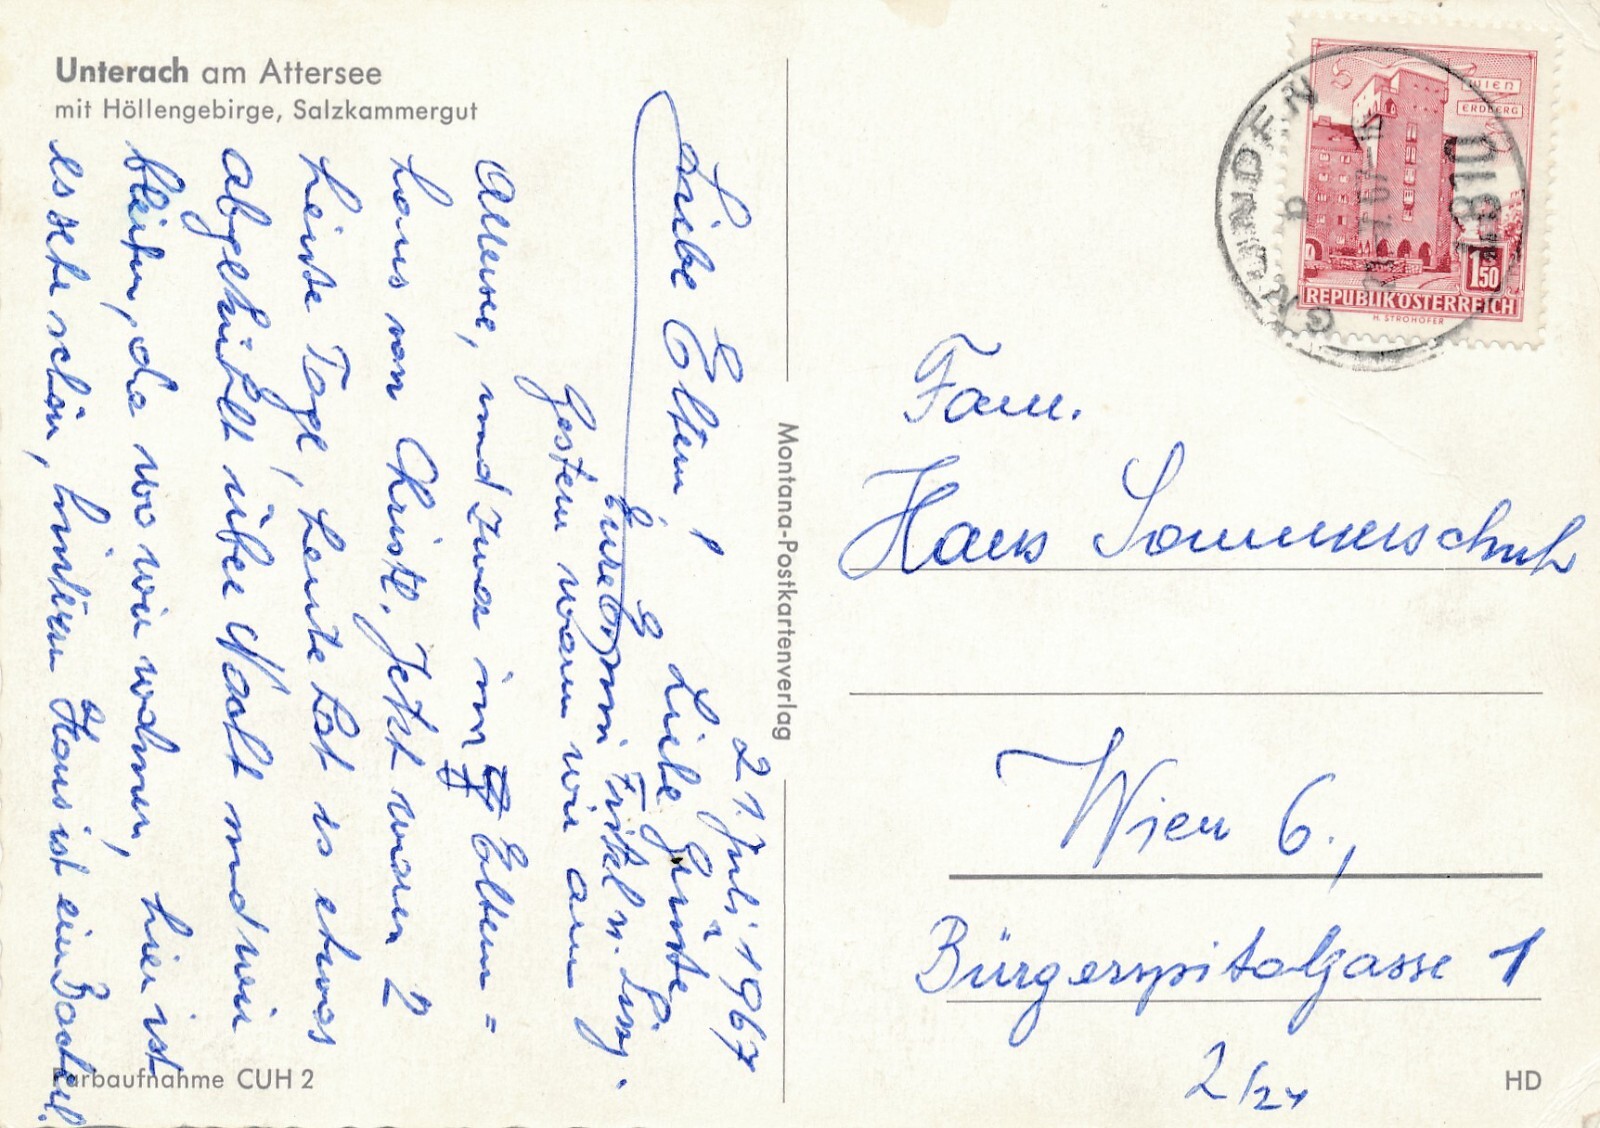 Unterach am Attersee
mit Höllengebirge, Salzkammergut
21. Juli 1967
Liebe Eltern!
Gestern waren wir am
Attersee, und zwar im Eltern=
haus von Christl. Jetzt waren 2
heiße Tage, heute hat es etwas
abgekühlt über Nacht und wir
bleiben, da wo wir wohnen, hier ist
es sehr schön, hinterm Haus ist ein Bacherl.
Liebe Grüße
Eure
Fritzl u. Susy.
Farbaufnahme CUH 2
Montana-Postkartenverlag
WIEN
ERDBERG
1.50
REPUBLIK ÖSTERREICH
H. STROHOFER
GMUNDEN
4810
Fam.
Hans Sommerschuh
Wien 6.,
Bürgerspitalgasse 1
2/24
HD